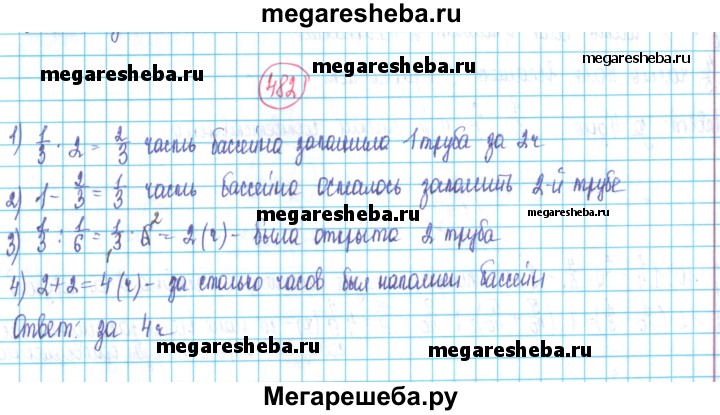 megaresheba.ru
megaresheba.ru megaresheba.ru megaresheba.ru
482
1) 1/3 · 2 = 2/3 часть бассейна заполнила 1 труба за 2ч
2) 1 - 2/3 = 1/3 часть бассейна осталось заполнить 2-й трубе
megaresheba.ru megaresheba.ru
3) 1/3 : 1/6 = 1/3 · 6 2 = 2 (ч) - была открыта 2 труба
4) 2+2=4 (ч) - за столько часов был наполнен бассейн
Ответ: за 4ч
megaresheba.ru megaresheba.ru
Мегарешеба.ру